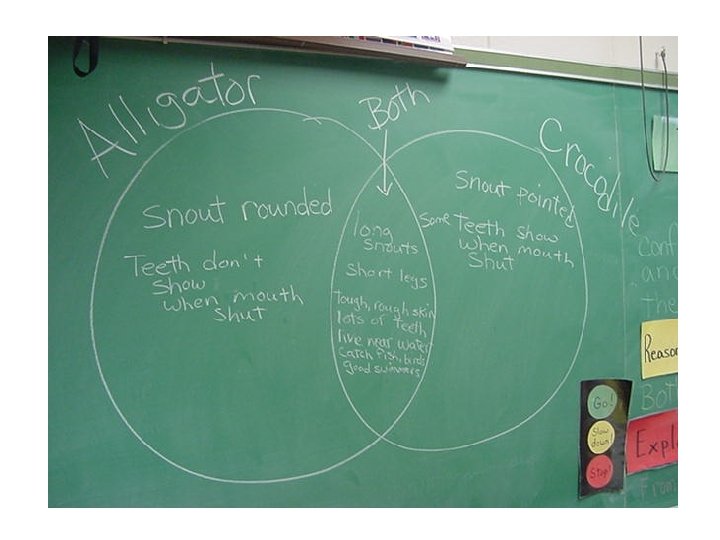 Alligator
Both
Crocodile
Snout rounded
Teeth don't
show
when mouth
shut
long
snouts
short legs
Tough, rough skin
lots of Teeth
live near water
Catch fish, birds
good swimmers
Snout pointed
some Teeth show
when mouth
shut
Conf
and
the
Reason
Both
Expl
From
Go!
Slow
down!
Stop!